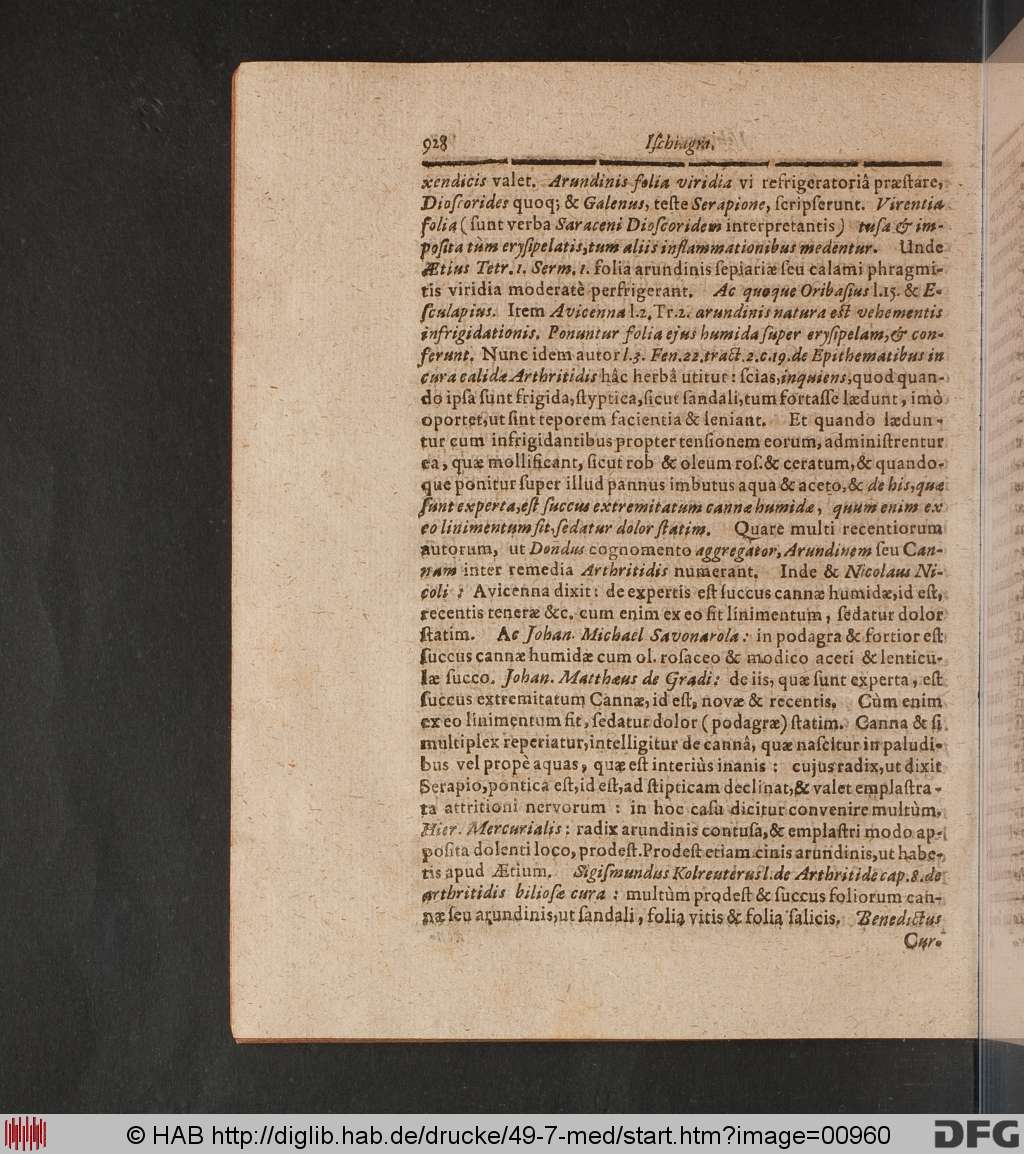 928 Iſchiagra.
xendicis valet. Arundinis folia viridia vi refrigeratoriâ præſtare,
Dioſcorides quoq; & Galenus, teſte Serapione, ſcripſerunt. Virentia
folia (ſunt verba Saraceni Dioſcoridem interpretantis) tuſa & im-
poſita tùm eryſipelatis, tum aliis inflammationibus medentur. Unde
Ætius Tetr. 1. Serm. 1. folia arundinis ſepiariæ ſeu calami phragmi-
tis viridia moderatè perfrigerant. Ac quoque Oribaſius l. 15. & E-
ſculapius. Item Avicenna l. 2, Tr. 2. arundinis natura eſt vehementis
infrigidationis. Ponuntur folia ejus humida ſuper eryſipelam, & con-
ferunt. Nunc idem autor l. 3. Fen. 22. tract. 2. c. 19. de Epithematibus in
cura calidæ Arthritidis hâc herbâ utitur: ſcias, inquiens, quod quan-
do ipſa ſunt frigida, ſtyptica, ſicut ſandali, tum fortaſſe lædunt, imò
oportet, ut ſint teporem facientia & leniant. Et quando lædun-
tur cum infrigidantibus propter tenſionem eorum, adminiſtrentur
ea, quæ mollificant, ſicut rob & oleum roſ. & ceratum, & quando-
que ponitur ſuper illud pannus imbutus aqua & aceto, & de his, quæ
ſunt experta, eſt ſuccus extremitatum cannæ humidæ, quum enim ex
eo linimentum fit, ſedatur dolor ſtatim. Quare multi recentiorum
autorum, ut Dondus cognomento aggregator, Arundinem ſeu Can-
nam inter remedia Arthritidis numerant. Inde & Nicolaus Ni-
coli: Avicenna dixit: de expertis eſt ſuccus cannæ humidæ, id eſt,
recentis teneræ &c. cum enim ex eo fit linimentum, ſedatur dolor
ſtatim. Ac Johan. Michael Savonarola: in podagra & fortior eſt
ſuccus cannæ humidæ cum ol. roſaceo & modico aceti & lenticu-
læ ſucco. Johan. Matthæus de Gradi: de iis, quæ ſunt experta, eſt
ſuccus extremitatum Cannæ, id eſt, novæ & recentis. Cùm enim
ex eo linimentum fit, ſedatur dolor (podagræ) ſtatim. Canna & ſi
multiplex reperiatur, intelligitur de cannâ, quæ naſcitur in paludi-
bus vel propè aquas, quæ eſt interiùs inanis: cujus radix, ut dixit
Serapio, pontica eſt, id eſt, ad ſtipticam declinat, & valet emplaſtra-
ta attritioni nervorum: in hoc caſu dicitur convenire multùm.
Hier. Mercurialis: radix arundinis contuſa, & emplaſtri modo ap-
poſita dolenti loco, prodeſt. Prodeſt etiam cinis arundinis, ut habe-
tis apud Ætium. Sigiſmundus Kolreuterus l. de Arthritide cap. 8. de
arthritidis bilioſæ cura: multùm prodeſt & ſuccus foliorum can-
næ ſeu arundinis, ut ſandali, folia vitis & folia ſalicis. Benedictus
Cur-
© HAB http://diglib.hab.de/drucke/49-7-med/start.htm?image=00960
DFG